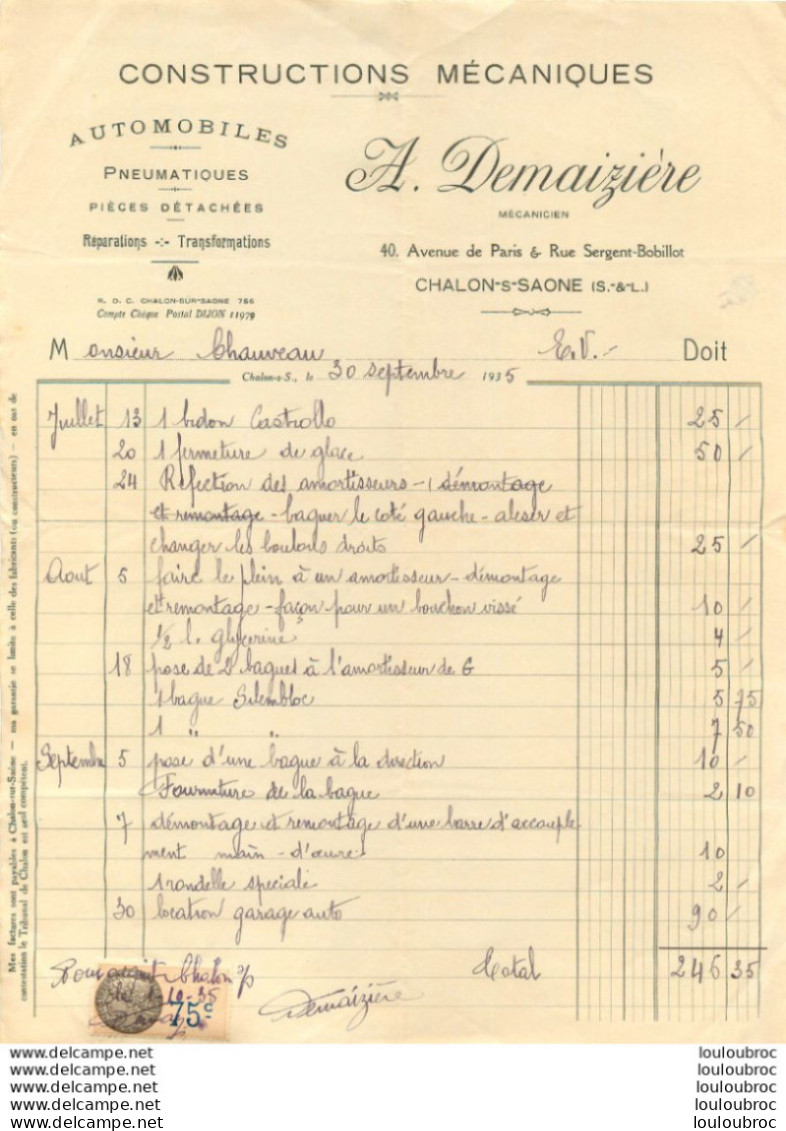 CONSTRUCTIONS MÉCANIQUES
AUTOMOBILES
PNEUMATIQUES
PIÈCES DÉTACHÉES
Réparations -:- Transformations
R. D. C. CHALON-SUR-SAONE 766
Compte Chèque Postal DIJON 11979
A. Demaizière
MÉCANICIEN
40. Avenue de Paris & Rue Sergent-Bobillot
CHALON-S-SAONE (S.-&-L.)
Monsieur Chauveau E.V.- Doit
Chalon-s-S., le 30 septembre 1935
Juillet 13 1 bidon Castrollo 25 /
20 1 fermeture de glace 50 /
24 Réfection des amortisseurs - 1 démontage
et remontage - baguer le coté gauche - aleser et
changer les boulons droits 25 /
Aout 5 faire le plein à un amortisseur - démontage
et remontage - façon pour un bouchon vissé 10 /
1/2 l. glycerine 4 /
18 pose de 2 bagues à l'amortisseur de G 5 /
1 bague Silembloc 5 75
1 " " 7 50
Septembre 5 pose d'une bague à la direction 10 /
Fourniture de la bague 2 10
7 démontage et remontage d'une barre d'accouple
ment main-d'œuvre 10
1 rondelle speciale 2 /
30 location garage auto 90 /
Total 246 35
Pour acquit Chalon s/s
le 1-10-35
75c
Demaizière
Mes factures sont payables à Chalon-sur-Saône — ma garantie se limite à celle des fabricants (ou constructeurs) — en cas de
contestation le Tribunal de Chalon est seul compétent.
www.delcampe.net louloubroc
www.delcampe.net louloubroc
www.delcampe.net louloubroc
www.delcampe.net louloubroc
www.delcampe.net louloubroc